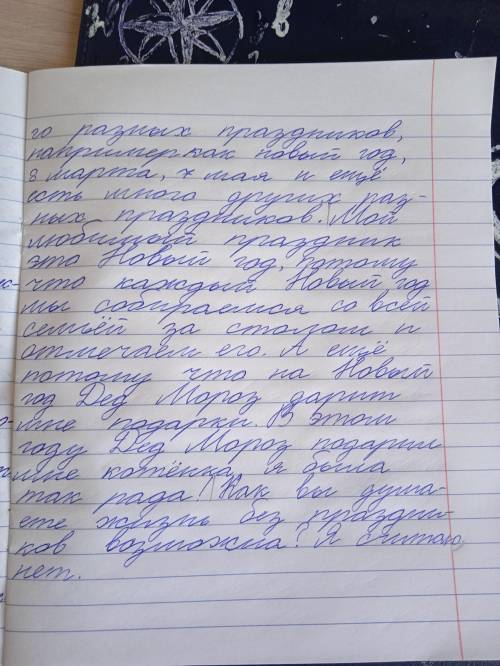 го разных праздников,
например как новый год,
8 марта, 7 мая и ещё
есть много других раз-
ных праздников. Мой
любимый праздник
это Новый год, потому
что каждый Новый год
мы собираемся со всей
семьёй за столом и
отмечаем его. А ещё
потому что на Новый
год Дед Мороз дарит
мне подарки. В этом
году Дед Мороз подарил
мне котёнка, я была
так рада! Как вы дума-
ете жизнь без праздни-
ков возможна? Я считаю
нет.